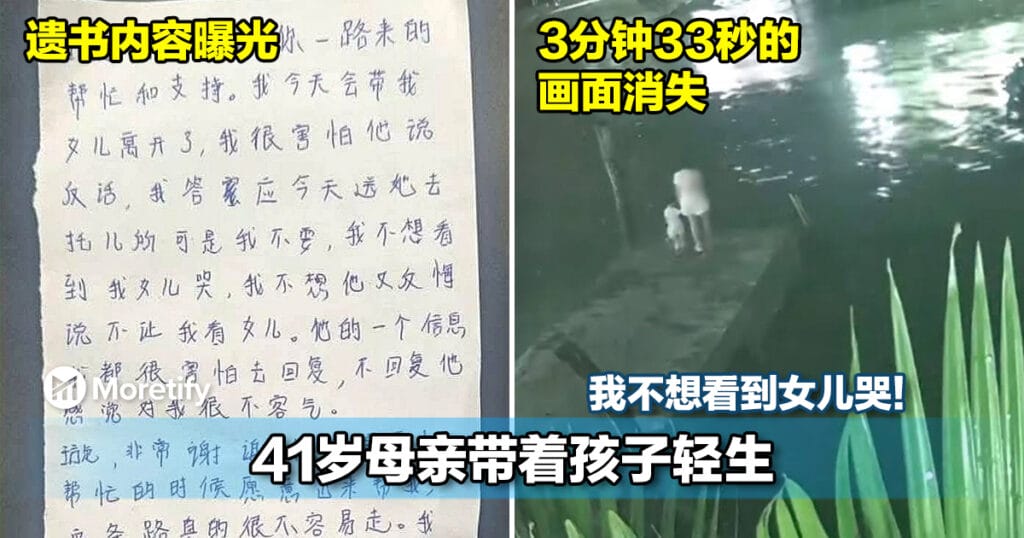 遗书内容曝光
你一路来的
帮忙和支持。我今天会带我
女儿离开了，我很害怕他说
反话，我答应今天送她去
托儿所可是我不要，我不想看
到我女儿哭，我不想他又反悔
说不让我看女儿。他的一个信息
都很害怕去回复，不回复他
感觉对我很不客气。
非常谢
帮忙的时候愿意
条路真的很不容易走。我
Moretify
3分钟33秒的
画面消失
我不想看到女儿哭!
41岁母亲带着孩子轻生